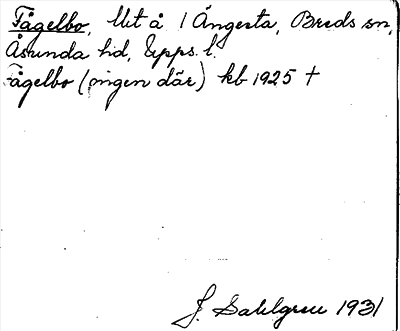 Fågelbo, Utt å 1 Ängesta, Breds sn,
Åsunda hd, Upps. l.
Fågelbo (ingen där) kb 1925 †
J. Sahlgren 1931